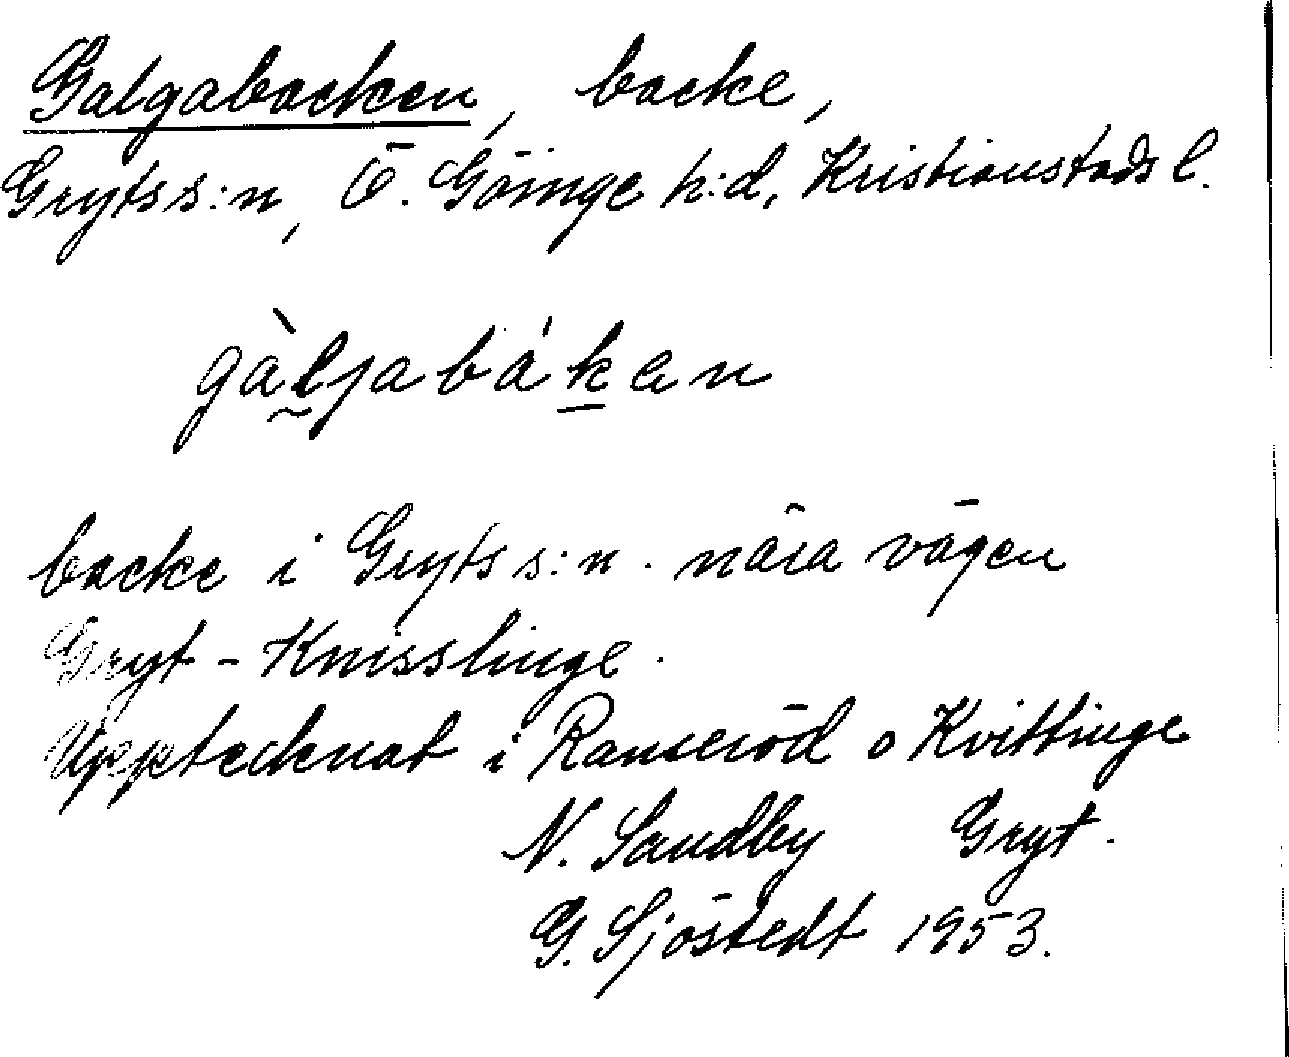 Galgabacken, backe,
Gryts s:n, Ö. Göinge h:d, Kristianstads l.
gàljabákan
backe i Gryts s:n. nära vägen
Gryt - Knisslinge.
Upptecknat i Ranseröd o Kvittinge
N. Sandby Gryt.
G. Sjöstedt 1953.